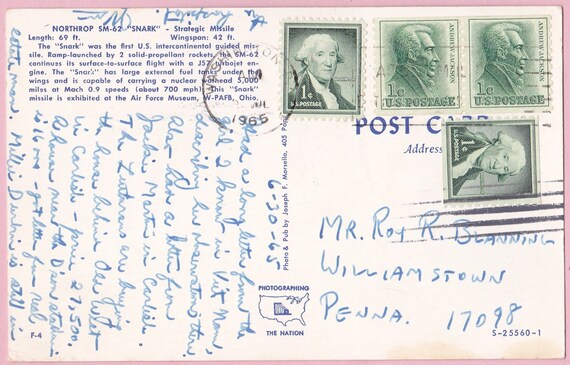 NORTHROP SM-62 "SNARK" - Strategic Missile
Length: 69 ft. Wingspan: 42 ft.
The "Snark" was the first U.S. intercontinental guided mis-
sile. Ramp-launched by 2 solid-propellant rockets, the SM-62
continues its surface-to-surface flight with a J57 turbojet en-
gine. The "Snark" has large external fuel tanks under the
wings and is capable of carrying a nuclear warhead 5,000
miles at Mach 0.9 speeds (about 700 mph). This "Snark"
missile is exhibited at the Air Force Museum, W-PAFB, Ohio.
1¢
U.S. POSTAGE
1¢
U.S. POSTAGE
ANDREW JACKSON
1¢
U.S. POSTAGE
ANDREW JACKSON
1¢
U.S. POSTAGE
1965
POST CARD
Address
6-30-65
Had a long letter from the
I know in Viet Nam,
his observations there.
Also had a letter from
Jackie Martin in Carlisle.
The are buying
a house behind Old West
in Carlisle - price 27,500.
A house near the Dixon
is 16 - for real
estate man. Millie is still in
the hospital.
Photo & Pub by Joseph F. Morsello, 405
PHOTOGRAPHING
THE NATION
MR. ROY R. BLANNING
WILLIAMSTOWN
PENNA. 17098
F-4
S-25560-1